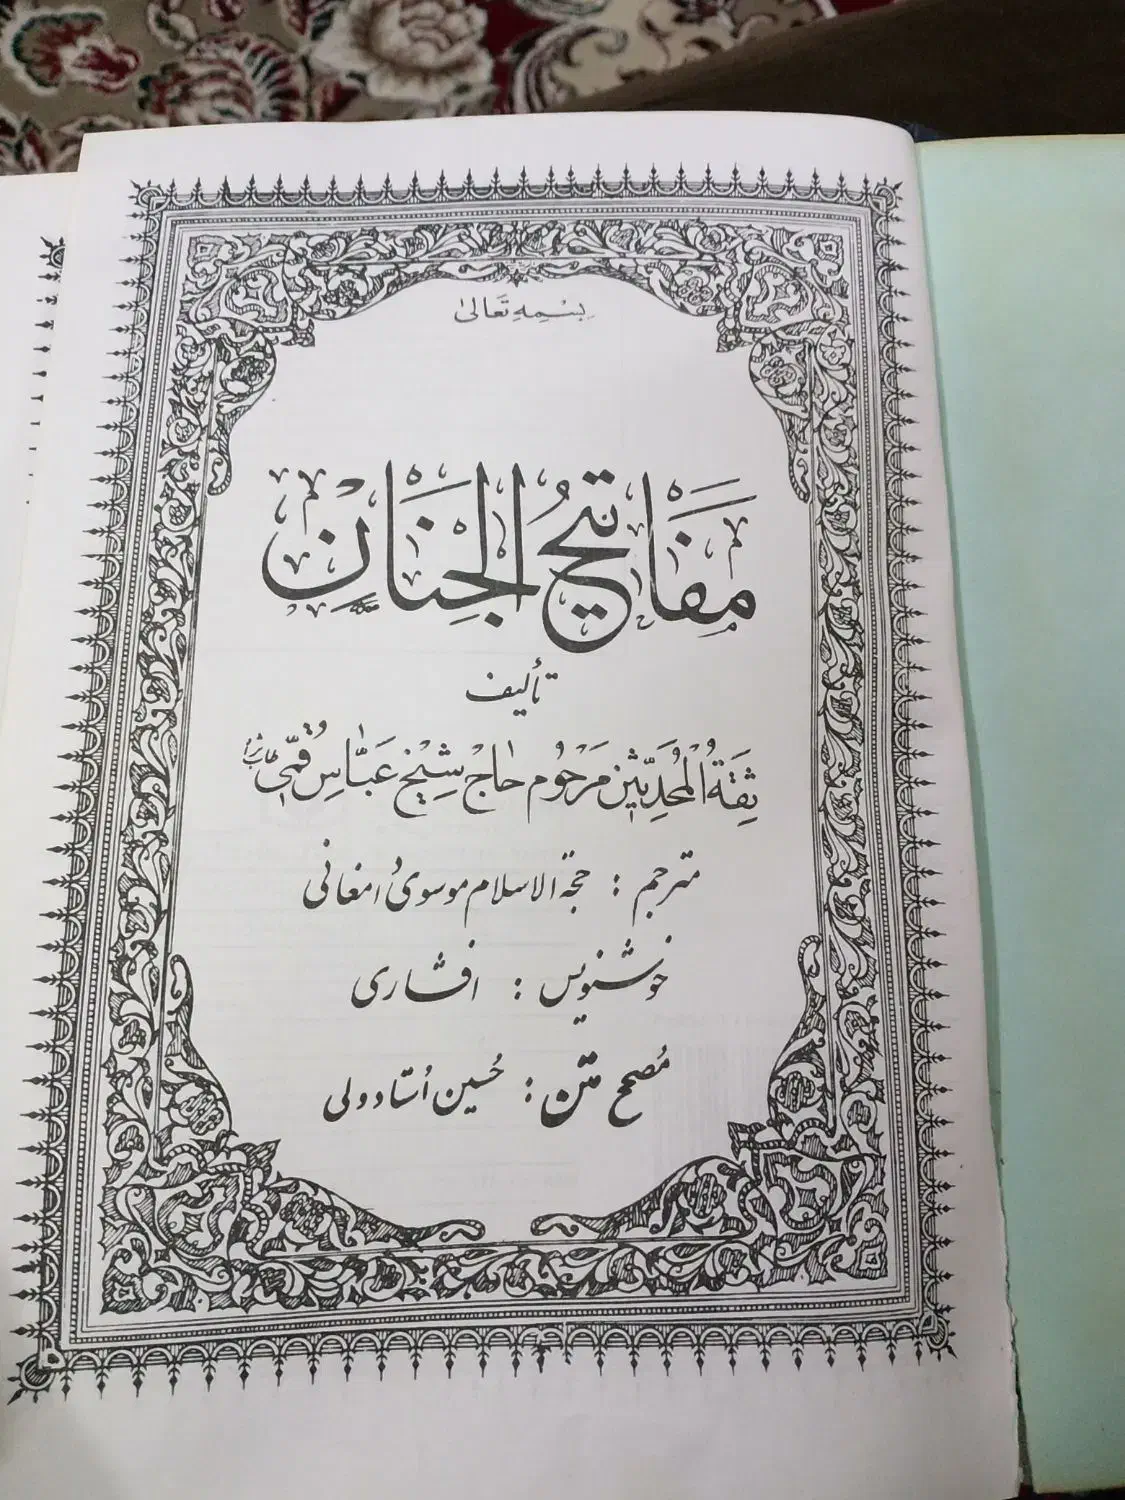 بِسْمِهِ تَعَالیٰ
مَفَاتِیحُ الْجِنَانِ
تألیف
ثِقَةُ الْمُحَدِّثِین مَرْحُوم حٰاج شِیْخ عَبّٰاسِ قُمّی طاب ثراه
مترجم : حجة الاسلام موسوی دامغانی
خوشنویس : افشاری
مُصحح متن : حُسین اُستادولی